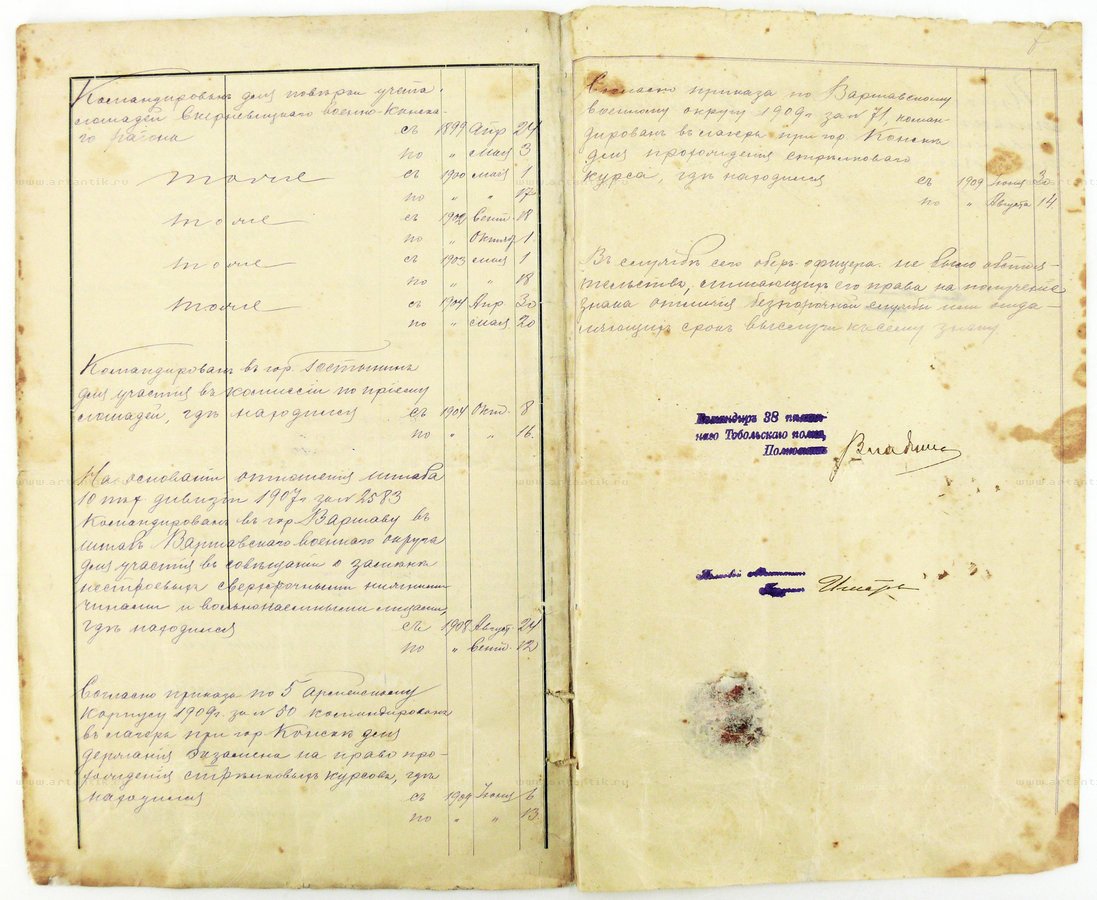 Командированъ для повѣрки учета
лошадей Скерневицкого военно-конска-
го района съ 1899 Апр 24
по „ Мая 3
тоже съ 1900 мая 1
по „ „ 17
тоже съ 1902 Сент. 18
по „ Октяб 1
тоже съ 1903 мая 1
по „ „ 18
тоже съ 1904 Апр 30
по „ Мая 20
Командированъ въ гор. Гостынинъ
для участія въ комиссіи по пріему
лошадей, гдѣ находился съ 1904 Окт. 8
по „ „ 16.
На основаніи отношенія штаба
10 пѣх дивизіи 1907г за № 2583
командированъ въ гор Варшаву въ
штабъ Варшавскаго военнаго округа
для участія въ совѣщаніи о замѣнѣ
нестроевыхъ сверхсрочными нижними
чинами и вольнонаемными лицами,
гдѣ находился съ 1908 Август. 24
по „ Сент. 12
Согласно приказа по 5 Армейскому
корпусу 1909г. за № 50 командированъ
въ лагерь при гор Конскъ для
держанія экзамена на право про-
хожденія стрѣлковыхъ курсовъ, гдѣ
находился съ 1909 Іюня 6
по „ „ 13
Согласно приказа по Варшавскому
военному округу 1909г за № 71, коман-
дированъ въ лагерь при гор. Конскъ
для прохожденія стрѣлковаго
курса, гдѣ находился съ 1909 Іюня 30
по „ Августа 14
Въ службѣ сего оберъ-офицера не было обстоя-
тельствъ, лишающихъ его права на полученіе
знака отличія безпорочной службы или отда-
ляющихъ срокъ выслуги къ сему знаку
Командиръ 38 пѣхот-
наго Тобольскаго полка,
Полковникъ
Полковой Адъютантъ
www.artantik.ru